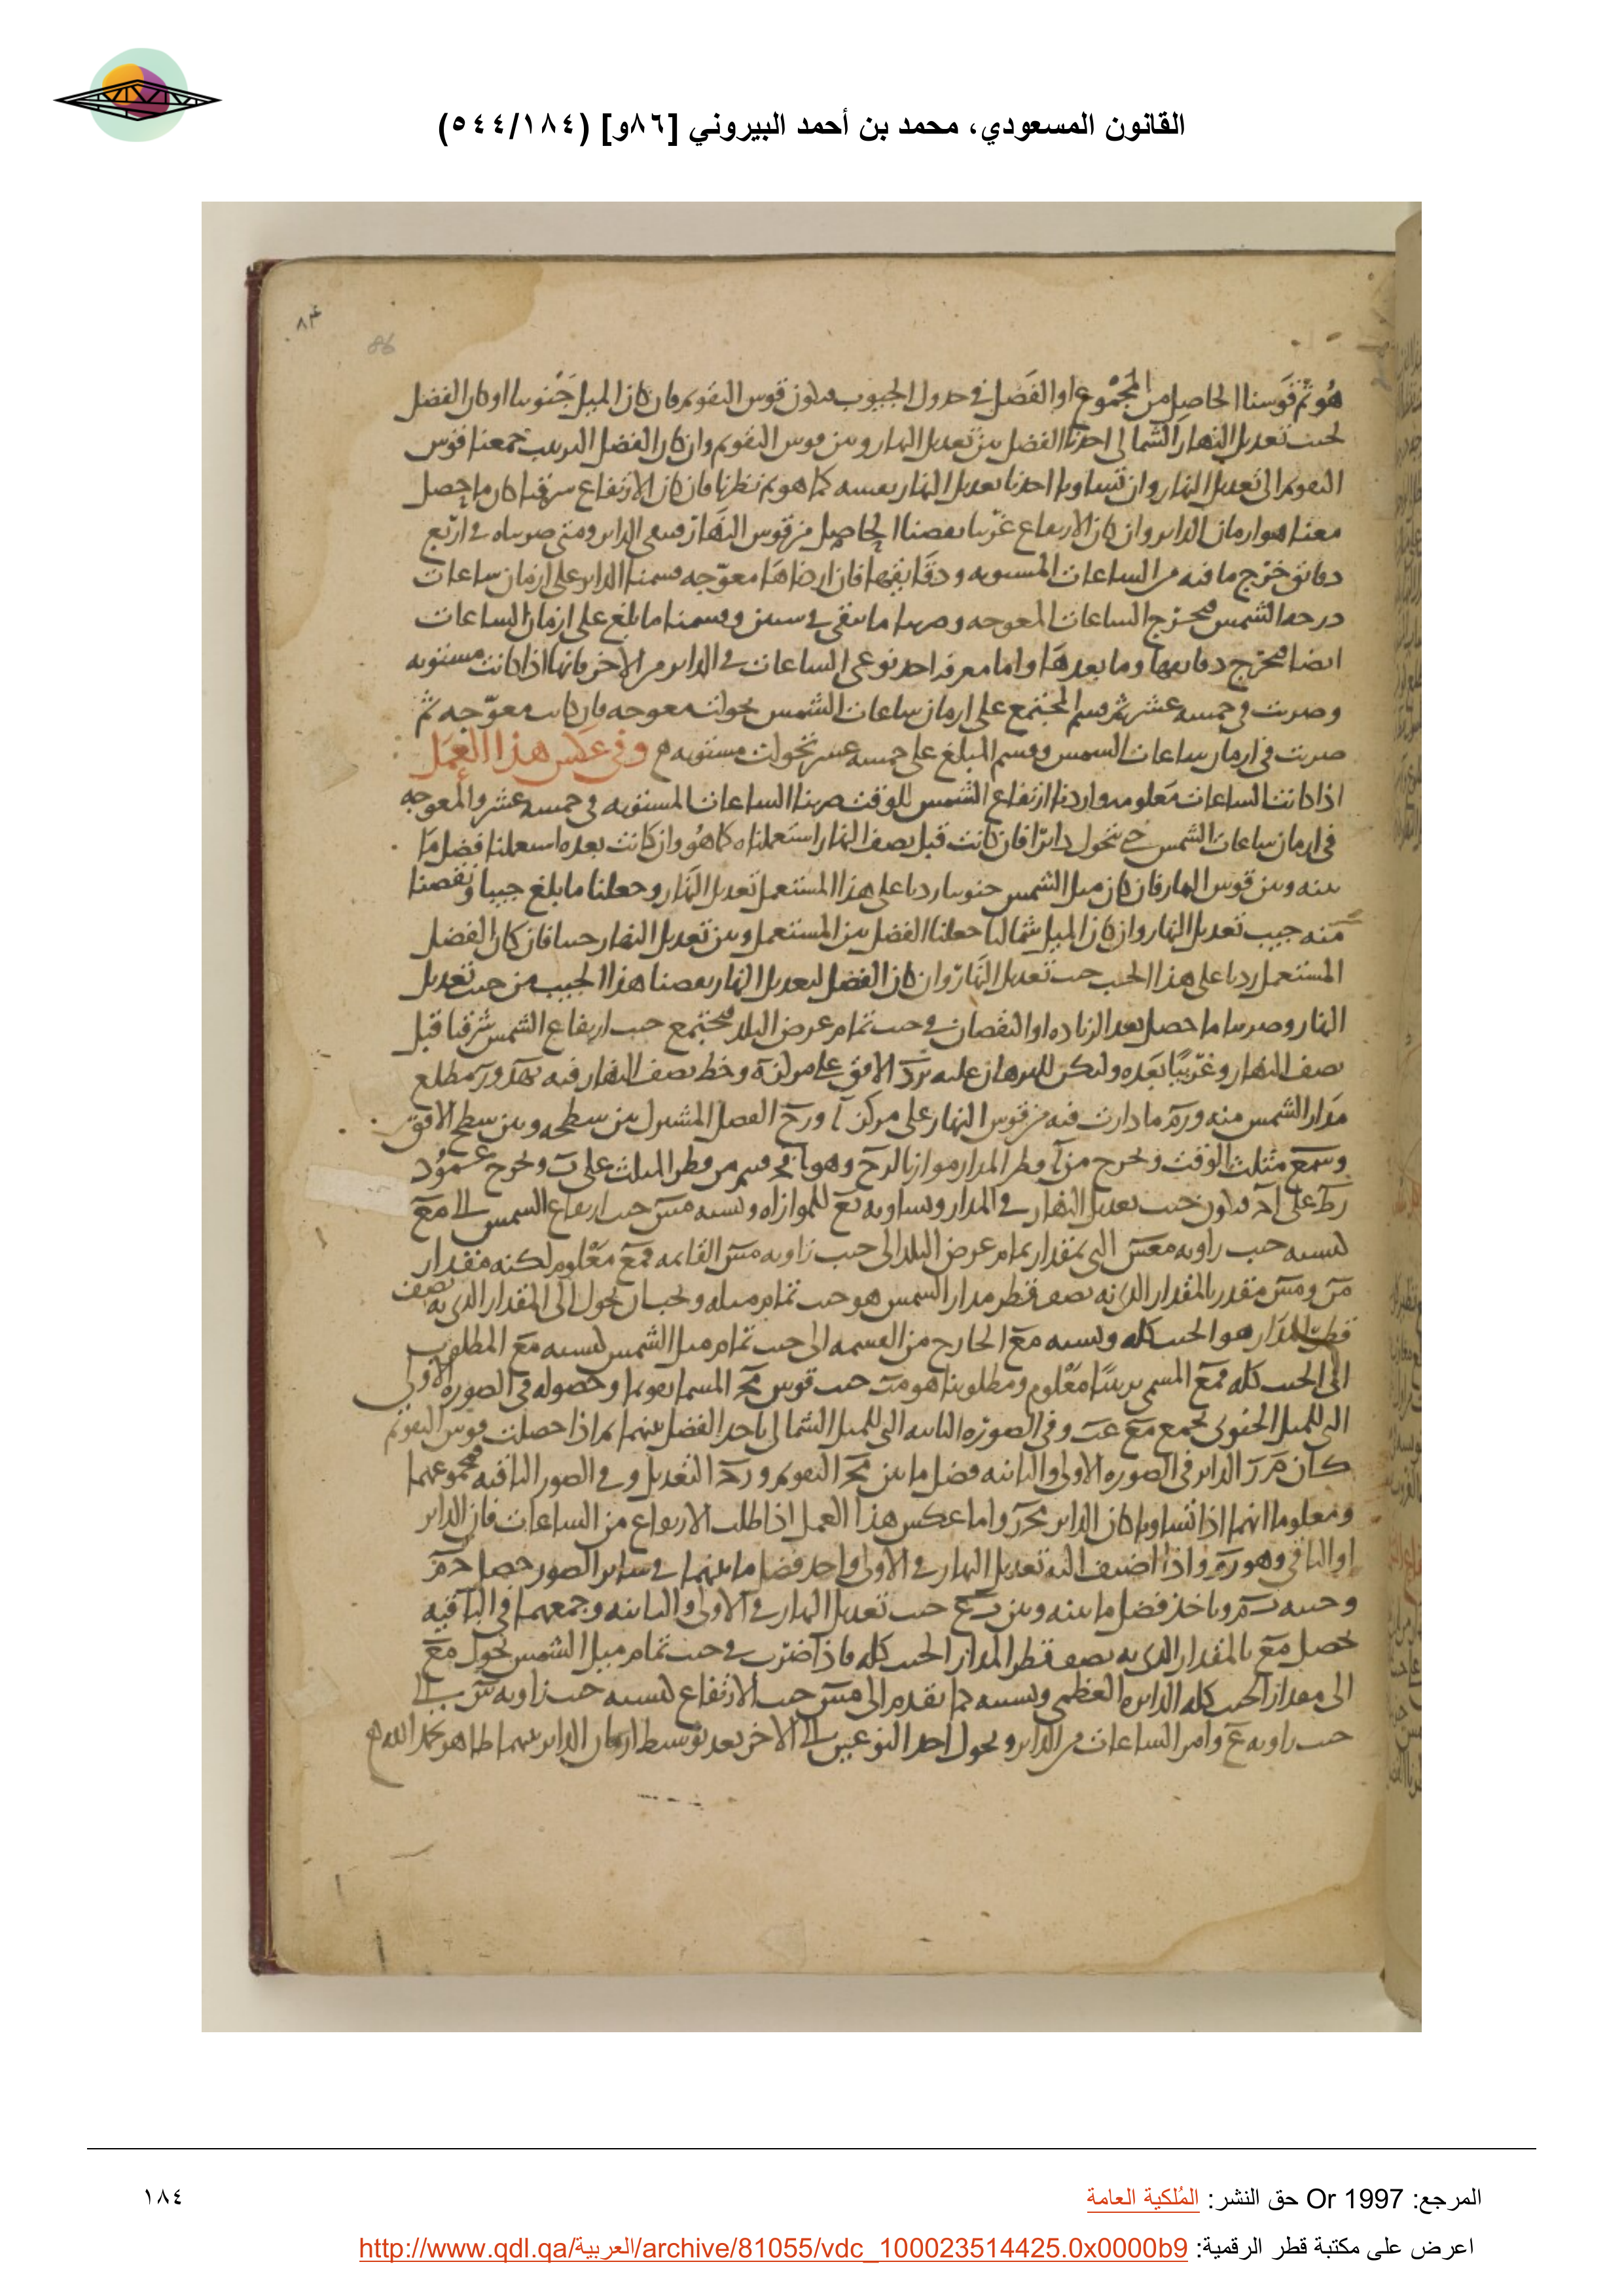 القانون المسعودي، محمد بن أحمد البيروني [٨٦و] (٥٤٤/١٨٤)
٨٤
86
هُو ثم قوّسنا الحاصل من المجموع او الفضل في جدول الجيوب فيكون قوس التقويم فان كان الميل جَنُوبيا او كان الفضل
لجيب تعديل النهار الشمالي اخذنا الفضل بين تعديل النهار وبين قوس التقويم وان كان الفضل الترتيب جمعنا قوس
التقويم الى تعديل النهار وان تساويا اخذنا تعديل النهار بعينه كما هو ثم نظرنا فان كان الارتفاع شرقيا كان ما حصل
معنا هو ازمان الداير وان كان الارتفاع غربيا نقصنا الحاصل من قوس النهار فيبقى الداير ومتى ضربناه في اربع
دقائق خرج ما فيه من الساعات المستويه ودقايقها فان اردناها معوّجه قسمنا الداير على ازمان ساعات
درجه الشمس فتخرج الساعات المعوجه وضربنا ما يبقى في ستين وقسمنا ما بلغ على ازمان الساعات
ايضا فتخرج دقايقها وما بعدها واما معرفه احد نوعي الساعات في الداير من الاخر فانها اذا كانت مستويه
وضربت في خمسه عشر ثم قسم المجتمع على ازمان ساعات الشمس تحولت معوجه فان كانت معوّجه ثم
ضربت في ازمان ساعات الشمس وقسم المبلغ على خمسه عشر تحولت مستويه وفي عكس هذا العمل
اذا كانت الساعات معلومه واردنا ارتفاع الشمس للوقت ضربنا الساعات المستويه في خمسه عشر والمعوجه
في ازمان ساعات الشمس حتى تحول دائرا فان كانت قبل نصف النهار استعملناه كما هُو وان كانت بعده استعملنا فضل ما
بينه وبين قوس النهار فان كان ميل الشمس جنوبيا زدنا على هذا المستعمل تعديل النهار وجعلنا ما بلغ جيبا ونقصنا
منه جيب تعديل النهار وان كان الميل شماليا جعلنا الفضل بين المستعمل وبين تعديل النهار جيبا فان كان الفضل
المستعمل زدنا على هذا الجيب جيب تعديل النهار وان كان الفضل لتعديل النهار نقصنا هذا الجيب من جيب تعديل
النهار وضربنا ما حصل بعد الزياده او النقصان في جيب تمام عرض البلد فيجتمع جيب ارتفاع الشمس شرقيا قبل
نصف النهار وغربيًا بعده وليكن للبرهان عليه الافق على مركز ه وخط نصف النهار فيه مطلع
مدار الشمس منه ما دارت فيه من قوس النهار على مركز الفصل المشترك بين سطحه وبين سطح الافق
مثلث الوقت ونخرج من قطر المدار موازيا وهو قسم من قطر المثلث على ونخرج عمود
على فيكون جيب تعديل النهار في المدار ويساويه للموازاه ونسبه جيب ارتفاع الشمس الى
كنسبه جيب زاويه التي بمقدار تمام عرض البلد الى جيب زاويه القائمه معلوم لكنه مقدار
مقدر بالمقدار الذي به نصف قطر مدار الشمس هو جيب تمام ميله ونحن نحول الى المقدار الذي به نصف
قطر المدار هو الجيب كله ونسبه الخارج من القسمه الى جيب تمام ميل الشمس كنسبه المطلوب
الى الجيب كله المسمى ترتيبا معلوم ومطلوبنا هو جيب قوس المسما تقويما وحصوله في الصوره الاولى
التي للميل الجنوبي بجمع وفي الصوره الثانيه التي للميل الشمالي باخذ الفضل بينهما ثم اذا حصلت قوس التقويم
كان الداير في الصوره الاولى والثانيه فضل ما بين التقويم التعديل وفي الصور الباقيه مجموعهما
ومعلوما انهما اذا تساويا كان الداير واما عكس هذا العمل اذا طلب الارتفاع من الساعات فان الداير
او الباقي وهو واذا اضيف اليه تعديل النهار في الاولى واخذ فضل ما بينهما في ساير الصور حصل
وجيبه وناخذ فضل ما بينه وبين جيب تعديل النهار في الاولى والثانيه وجمعهما في الباقيه
تحصل بالمقدار الذي به نصف قطر المدار الجيب كله فاذا ضرب في جيب تمام ميل الشمس تحول
الى مقدار الجيب كله الدايره العظمى ونسبه كما تقدم الى جيب الارتفاع كنسبه جيب زاويه الى
جيب زاويه وامر الساعات من الداير وتحول احد النوعين الى الاخر بعد توسط ازمان الداير بينهما ظاهر بحمد الله
المرجع: Or 1997 حق النشر: المُلكية العامة
١٨٤
اعرض على مكتبة قطر الرقمية: http://www.qdl.qa/العربية/archive/81055/vdc_100023514425.0x0000b9